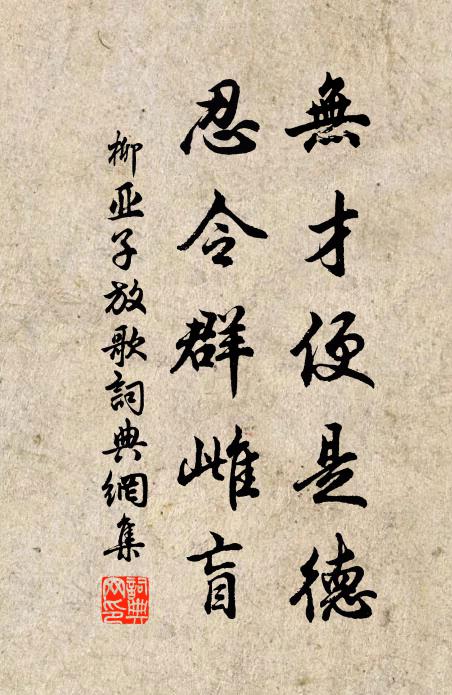 無才便是德
忍令群雌盲
柳亚子放歌詞典網集
詞典网印